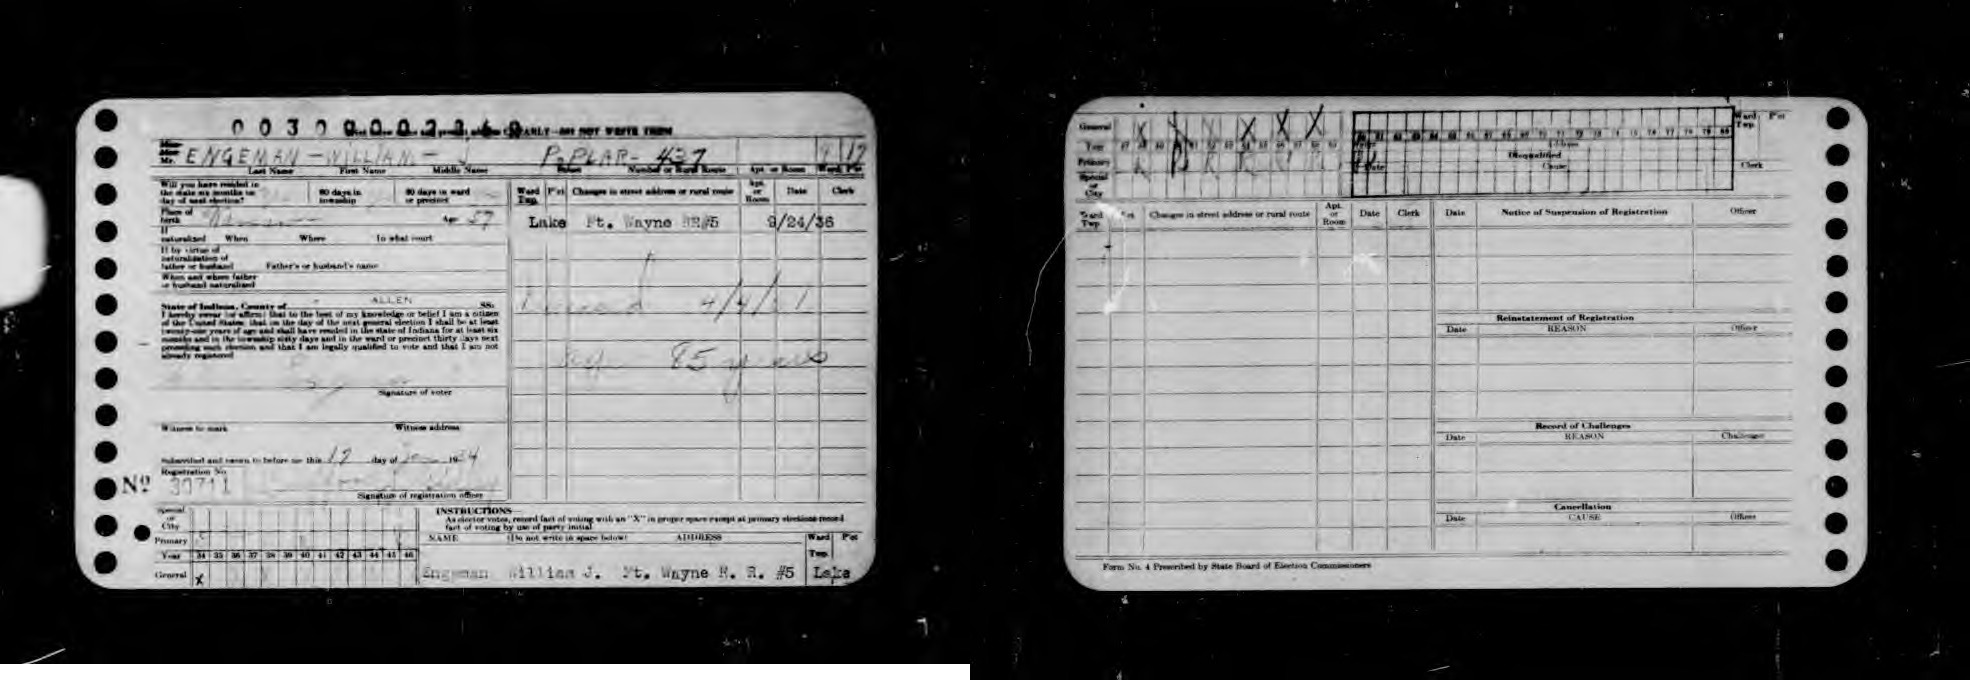 CLEARLY—DO NOT WRITE THEM
Miss
Mrs.
Mr. ENGEMAN - WILLIAM - J POPLAR - 437 9 17
Last Name First Name Middle Name Street Number or Rural Route Apt. or Room Ward P'ct
Will you have resided in the state six months on day of next election? 60 days in township 30 days in ward or precinct
Place of birth Age 57
If naturalized When Where In what court
If by virtue of naturalization of father or husband Father's or husband's name
When and where father or husband naturalized
State of Indiana, County of ALLEN SS:
I hereby swear (or affirm) that to the best of my knowledge or belief I am a citizen
of the United States; that on the day of the next general election I shall be at least
twenty-one years of age and shall have resided in the state of Indiana for at least six
months and in the township sixty days and in the ward or precinct thirty days next
preceding such election and that I am legally qualified to vote and that I am not
already registered
Signature of voter
Witness to mark Witness address
Subscribed and sworn to before me this 17 day of Jan 1934
Registration No.
No 37711
Signature of registration officer
Ward Twp. P'ct Changes in street address or rural route Apt. or Room Date Clerk
Lake Ft. Wayne RR#5 9/24/36
85 years
Special or City
Primary
Year 34 35 36 37 38 39 40 41 42 43 44 45 46
General X
INSTRUCTIONS—
As elector votes, record fact of voting with an "X" in proper space except at primary elections record
fact of voting by use of party initial
NAME (Do not write in space below) ADDRESS Ward Twp. P'ct
Engeman William J. Ft. Wayne R. R. #5 Lake
General X X X X X
Year
Primary R R R R R
Special or City
Disqualified
Date Cause Clerk
Ward Twp. P'ct
Ward Twp. P'ct Changes in street address or rural route Apt. or Room Date Clerk
Date Notice of Suspension of Registration Officer
Reinstatement of Registration
Date REASON Officer
Record of Challenges
Date REASON Challenger
Cancellation
Date CAUSE Officer
Form No. 4 Prescribed by State Board of Election Commissioners